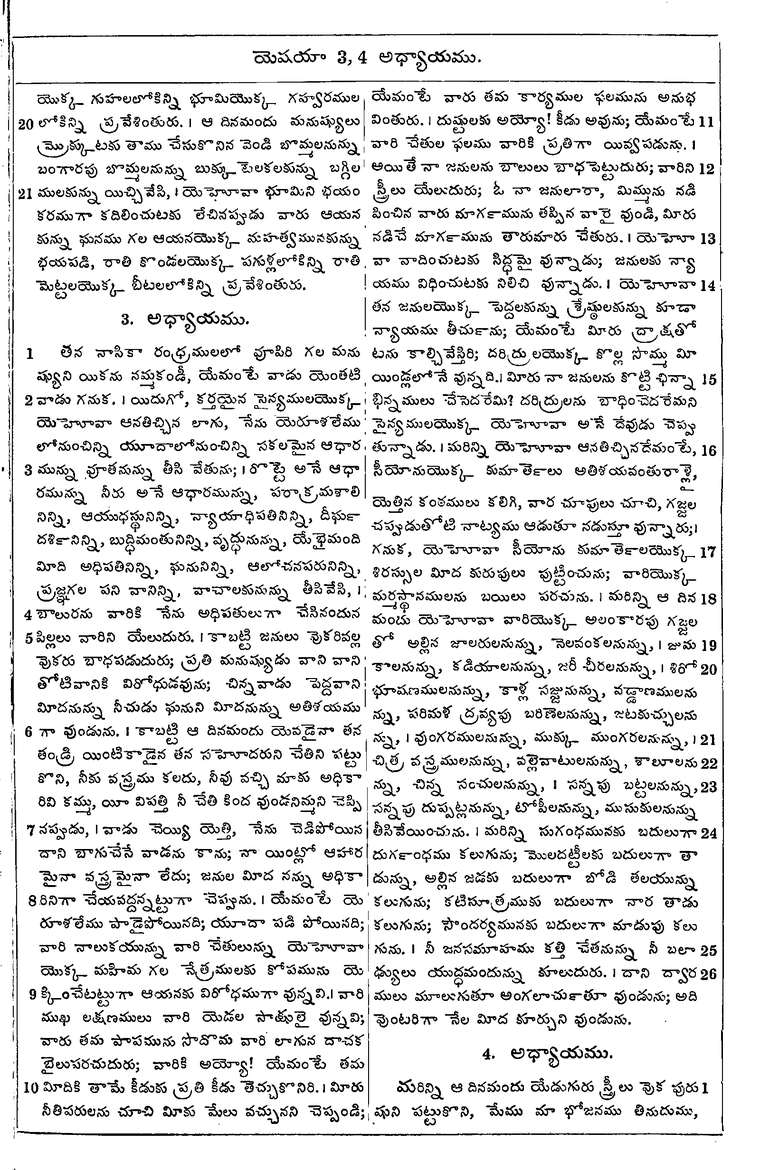 యెషయా 3, 4 అధ్యాయము.
యొక్క గుహలలోకిన్ని భూమియొక్క గహ్వరముల
20 లోకిన్ని ప్రవేశింతురు. । ఆ దినమందు మనుష్యులు
మ్రొక్కుటకు తాము చేసుకొనిన వెండి బొమ్మలనున్ను
బంగారపు బొమ్మలనున్ను బుక్కుటెలకలకున్ను బగ్గిల
21 ములకున్ను యిచ్చివేసి, । యెహోవా భూమిని భయం
కరముగా కదిలించుటకు లేచినప్పుడు వారు ఆయన
కున్ను ఘనము గల ఆయనయొక్క మహత్వమునకున్ను
భయపడి, రాతి కొండలయొక్క పగుళ్లలోకిన్ని రాతి
మెట్టలయొక్క బీటలలోకిన్ని ప్రవేశింతురు.
3. అధ్యాయము.
1 తన నాసికా రంధ్రములలో వూపిరి గల మను
ష్యుని యికను నమ్మకండీ, యేమంటే వాడు యెంతటి
2 వాడు గనుక. । యిదుగో, కర్తయైన సైన్యములయొక్క
యెహోవా ఆనతిచ్చిన లాగు, నేను యెరూశలేము
లోనుంచిన్ని యూదాలోనుంచిన్ని సకలమైన ఆధార
3 మున్ను వూతనున్ను తీసి వేతును; । రొట్టె అనే ఆధా
రమున్ను నీరు అనే ఆధారమున్ను, పరాక్రమశాలి
నిన్ని, ఆయుధస్థునిన్ని, న్యాయాధిపతినిన్ని, దీర్ఘ
దర్శినిన్ని, బుద్ధిమంతునిన్ని, వృద్ధునున్ను, యేభైమంది
మీది అధిపతినిన్ని, ఘనునిన్ని, ఆలోచనపరునిన్ని,
ప్రజ్ఞగల పని వానిన్ని, వాచాలకునున్ను తీసివేసి, ।
4 బాలురను వారికి నేను అధిపతులుగా చేసినందున
5 పిల్లలు వారిని యేలుదురు. । కాబట్టి జనులు వొకరివల్ల
వొకరు బాధపడుదురు; ప్రతి మనుష్యుడు వాని వాని
తోటివానికి విరోధుడవును; చిన్నవాడు పెద్దవాని
మీదనున్ను నీచుడు ఘనుని మీదనున్ను అతిశయము
6 గా వుండును. । కాబట్టి ఆ దినమందు యెవడైనా తన
తండ్రి యింటికాడైన తన సహోదరుని చేతిని పట్టు
కొని, నీకు వస్త్రము కలదు, నీవు వచ్చి మాకు అధికా
రివి కమ్ము, యీ విపత్తి నీ చేతి కింద వుండనిమ్మని చెప్పి
7 నప్పుడు, । వాడు చెయ్యి యెత్తి, నేను చెడిపోయిన
దాని బాగుచేసే వాడను కాను; నా యింట్లో ఆహార
మైనా వస్త్రమైనా లేదు; జనుల మీద నన్ను అధికా
8 రినిగా చేయవద్దన్నట్టుగా చెప్పును. । యేమంటే యె
రూశలేము పాడైపోయినది; యూదా పడి పోయినది;
వారి నాలుకయున్ను వారి చేతులున్ను యెహోవా
యొక్క మహిమ గల నేత్రములకు కోపమును యె
9 క్కించేటట్టుగా ఆయనకు విరోధముగా వున్నవి. । వారి
ముఖ లక్షణములు వారి యెడల సాక్షులై వున్నవి;
వారు తమ పాపమును సొదొమ వారి లాగున దాచక
బైలుపరచుదురు; వారికి అయ్యో! యేమంటే తమ
10 మీదికి తామే కీడుకు ప్రతి కీడు తెచ్చుకొనిరి. । మీరు
నీతిపరులను చూచి మీకు మేలు వచ్చునని చెప్పండి;
యేమంటే వారు తమ కార్యముల ఫలమును అనుభ
వింతురు. । దుష్టులకు అయ్యో! కీడు అవును; యేమంటే 11
వారి చేతుల ఫలము వారికి ప్రతిగా యివ్వపడును. ।
అయితే నా జనులను బాలులు బాధపెట్టుదురు; వారిని 12
స్త్రీలు యేలుదురు; ఓ నా జనులారా, మిమ్మును నడి
పించిన వారు మార్గమును తప్పిన వారై వుండి, మీరు
నడిచే మార్గమును తారుమారు చేతురు. । యెహో 13
వా వాదించుటకు సిద్ధమై వున్నాడు; జనులకు న్యా
యము విధించుటకు నిలిచి వున్నాడు. । యెహోవా 14
తన జనులయొక్క పెద్దలకున్ను శ్రేష్ఠులకున్ను కూడా
న్యాయము తీర్చును; యేమంటే మీరు ద్రాక్షతో
టను కాల్చివేస్తిరి; దరిద్రులయొక్క కొల్ల సొమ్ము మీ
యిండ్లలోనే వున్నది. । మీరు నా జనులను కొట్టి ఛిన్నా 15
భిన్నములు చేసెదరేమి? దరిద్రులను బాధించెదరేమని
సైన్యములయొక్క యెహోవా అనే దేవుడు చెప్పు
తున్నాడు. । మరిన్ని యెహోవా ఆనతిచ్చినదేమంటే, 16
సీయోనుయొక్క కుమార్తెలు అతిశయవంతురాళ్లై,
యెత్తిన కంఠములు కలిగి, వార చూపులు చూచి, గజ్జల
చప్పుడుతోటి నాట్యము ఆడుతూ నడుస్తూ వున్నారు; ।
గనుక, యెహోవా సీయోను కుమార్తెలయొక్క 17
శిరస్సుల మీద కురుపులు పుట్టించును; వారియొక్క
మర్మస్థానములను బయిలు పరచును. । మరిన్ని ఆ దిన 18
మందు యెహోవా వారియొక్క అలంకారపు గజ్జల
తో అల్లిన జాలరులనున్ను, నెలవంకలనున్ను, । జుమ 19
కాలనున్ను, కడియాలనున్ను, జరీ చీరలనున్ను, । శిరో 20
భూషణములనున్ను, కాళ్ల సజ్జునున్ను, వడ్డాణములను
న్ను, పరిమళ ద్రవ్యపు బరిణెలనున్ను, జటకుచ్చులను
న్ను, । వుంగరములనున్ను, ముక్కు ముంగరలనున్ను, । 21
చిత్ర వస్త్రములనున్ను, వల్లెవాటులనున్ను, శాలూలను 22
న్ను, చిన్న సంచులనున్ను, । సన్నపు బట్టలనున్ను, 23
సన్నపు దుప్పట్లనున్ను, టోపీలనున్ను, ముసుకులనున్ను
తీసివేయించును. । మరిన్ని సుగంధమునకు బదులుగా 24
దుర్గంధము కలుగును; మొలదట్టీలకు బదులుగా తా
డున్ను, అల్లిన జడకు బదులుగా బోడి తలయున్ను
కలుగును; కటిసూత్రముకు బదులుగా నార తాడు
కలుగును; సౌందర్యమునకు బదులుగా మాడుపు కలు
గును. । నీ జనసమూహము కత్తి చేతనున్ను నీ బలా 25
ఢ్యులు యుద్ధమందున్ను కూలుదురు. । దాని ద్వార 26
ములు మూలుగుతూ అంగలార్చుతూ వుండును; అది
వొంటరిగా నేల మీద కూర్చుని వుండును.
4. అధ్యాయము.
మరిన్ని ఆ దినమందు యేడుగురు స్త్రీలు వొక పురు 1
షుని పట్టుకొని, మేము మా భోజనము తినుదుము,